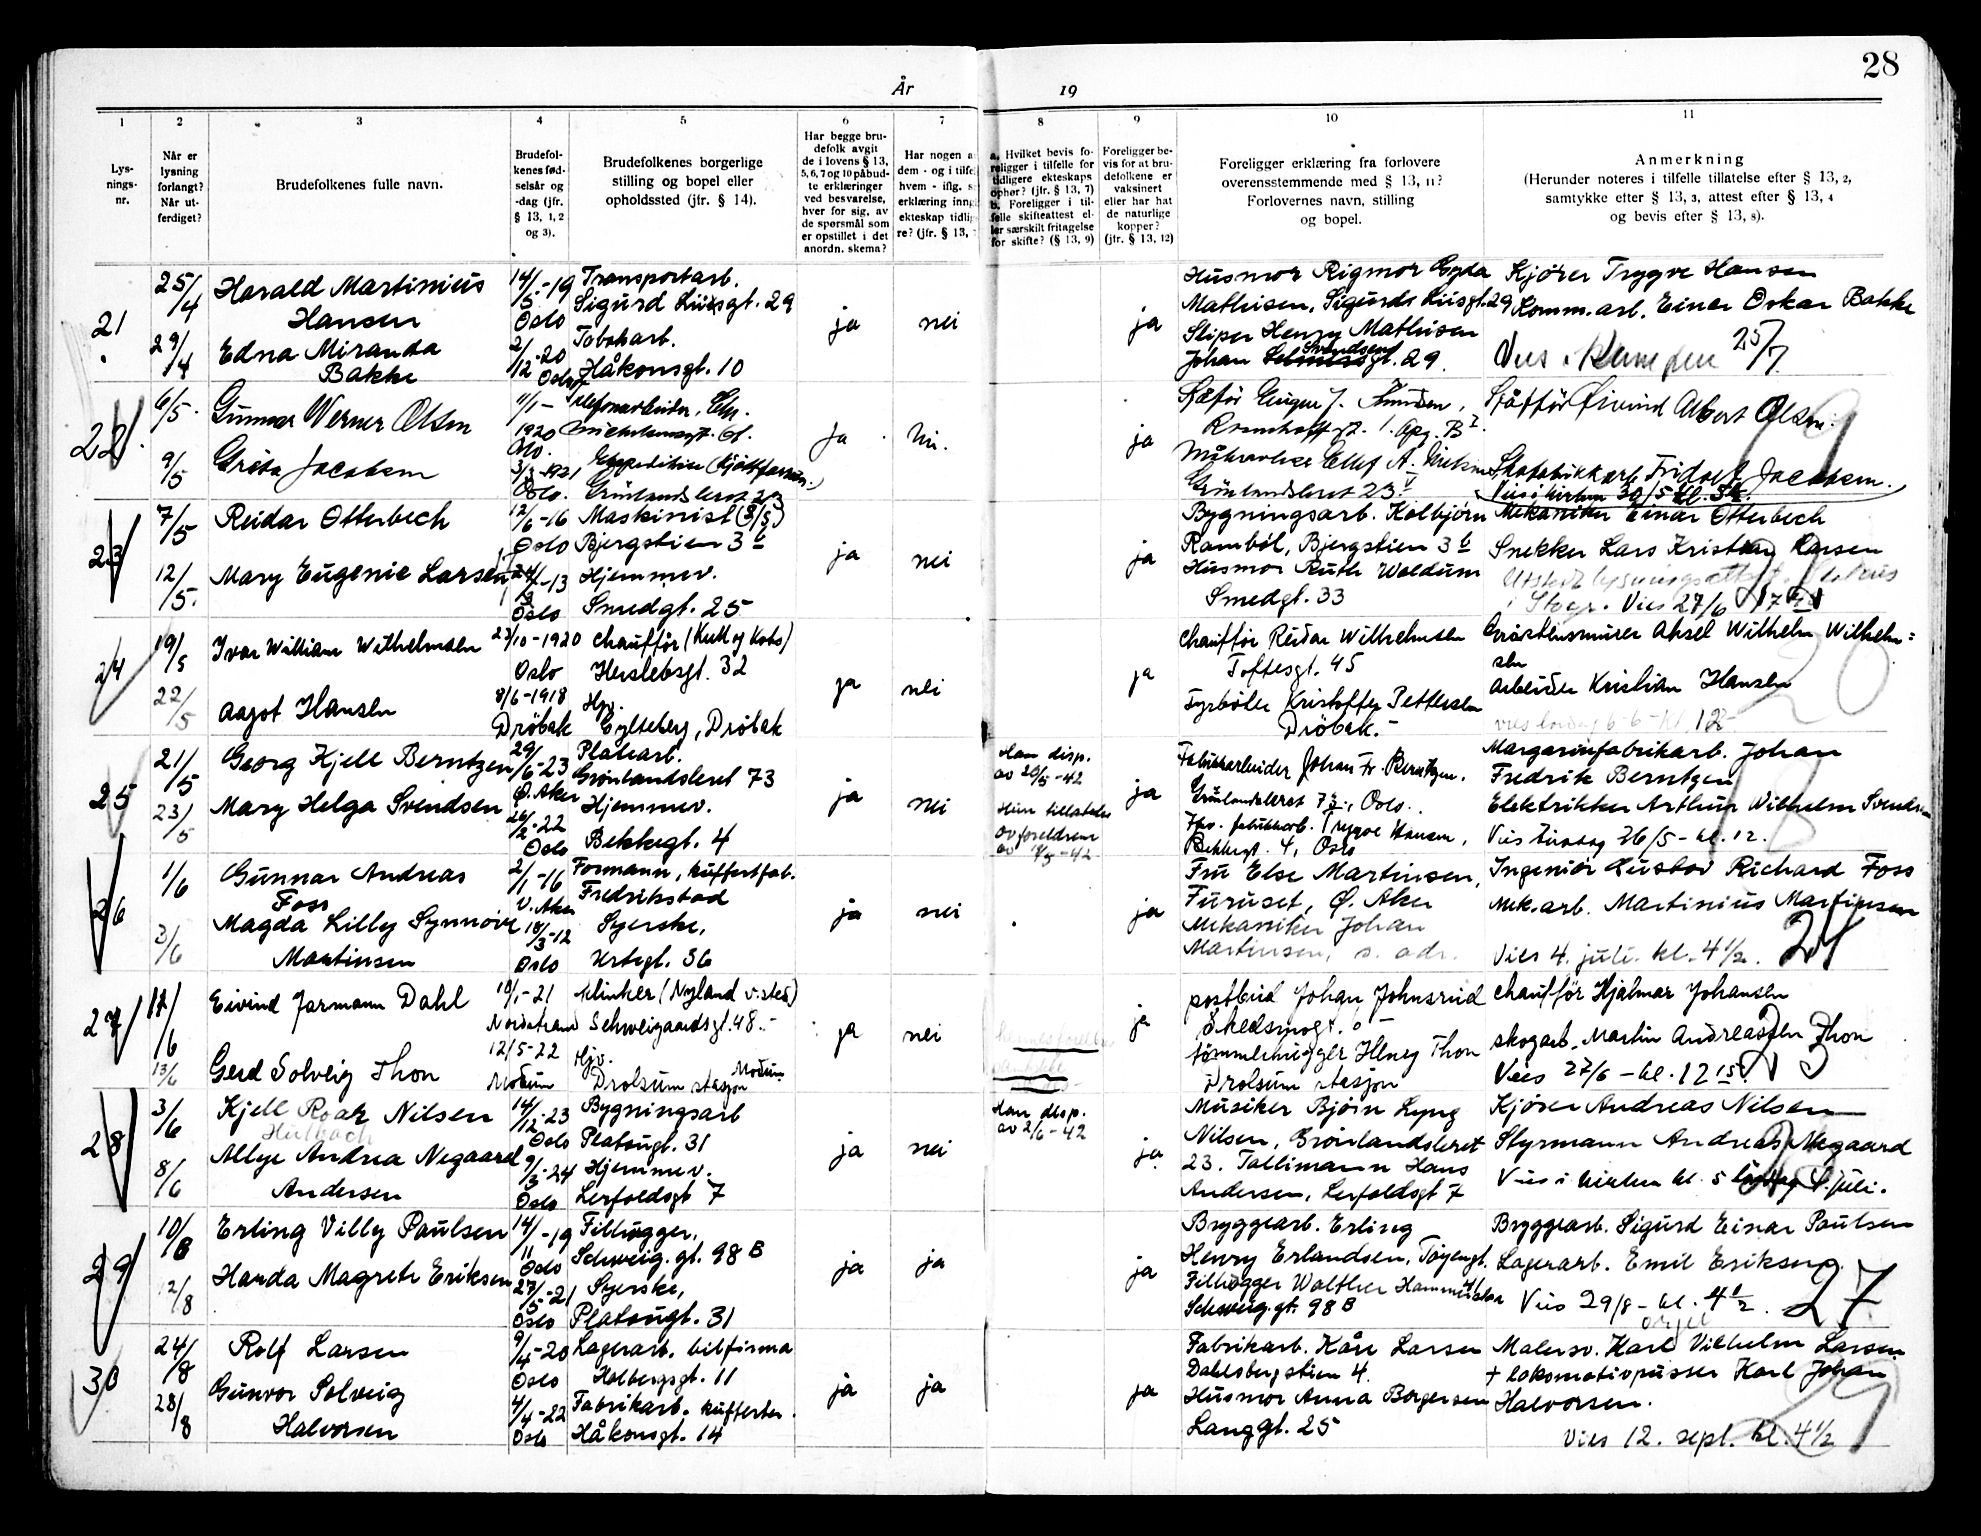 28
År 19
1 2 3 4 5 6 7 8 9 10 11
Lys-
nings-
nr.
Når er
lysning
forlangt?
Når ut-
ferdiget?
Brudefolkenes fulle navn.
Brudefol-
kenes fød-
selsår og
-dag (jfr.
§ 13, 1, 2
og 3).
Brudefolkenes borgerlige
stilling og bopel eller
opholdssted (jfr. § 14).
Har begge bru-
defolk avgit
de i lovens § 13,
5, 6, 7 og 10 påbud-
te erklæringer
ved besvarelse,
hver for sig, av
de spørsmål som
er opstillet i det
anordn. skema?
Har nogen a
dem - og i tilfe
hvem - iflg. s
erklæring inng
ekteskap tidlig
re? (jfr. § 13,
a. Hvilket bevis fo-
religger i tilfelle for
tidligere ekteskaps
ophør? (jfr. § 13, 7)
b. Foreligger i til-
felle skifteattest el-
ler særskilt fritagelse
for skifte? (§ 13, 9)
Foreligger be-
vis for at bru-
defolkene er
vaksinert
eller har hat
de naturlige
kopper?
(jfr. § 13, 12)
Foreligger erklæring fra forlovere
overensstemmende med § 13, 11?
Forlovernes navn, stilling
og bopel.
Anmerkning
(Herunder noteres i tilfelle tillatelse efter § 13, 2,
samtykke efter § 13, 3, attest efter § 13, 4
og bevis efter § 13, 8).
21
25/4
29/4
Harald Martinius
Hansen
Edna Miranda
Bakke
14/5-19
Oslo
2/12-20
Oslo
Transportarb.
Sigurd Liisgt. 29
Tobakarb.
Håkonsgt. 10
ja
nei
ja
Husmor Rigmor Gyda
Mathisen, Sigurds Liisgt. 29
Sliper Henry Mathisen
Johan Svendsengt. 29
Kjører Trygve Hansen
Komm.arb. Einar Oskar Bakke
Vies i Kampen 25/7
22
6/5
9/5
Gunnar Werner Olsen
Grete Jacobsen
1/1-
1920
Oslo.
3/3-1921
Oslo.
Grønlandsleret 23
ja
nei.
ja
Grønlandsleret 23
Øivind Albert Olsen
Skofabrikkarb. Fridolf Jacobsen.
Vies i kirken 30/5 kl.
19
23
7/5
12/5.
Reidar Otterbech
Mary Eugenie Larsen
12/6-16
Oslo
-13
Oslo
Maskinist (8/5)
Bjergstien 3 b
Hjemmev.
Smedgt. 25
ja
nei
ja
Bygningsarb. Kolbjørn
Rambøl, Bjergstien 3 b
Husmor Ruth Woldum
Smedgt. 33
Mekaniker Einar Otterbech
Snekker Lars Kristian Larsen
Vies 27/6
24
19/5
22/5
Ivar William Wilhelmsen
Aagot Hansen
23/10-1920
Oslo
8/6-1918
Drøbak
Chauffør (Kull og Koks)
Herslebsgt. 32
Hjv.
Gylteberg, Drøbak
ja
nei
ja
Chauffør Reidar Wilhelmsen
Toftesgt. 45
Fyrbøter Kristoffer Pettersen
Drøbak.-
Aksel Wilhelm Wilhelm=
sen
Arbeider Kristian Hansen
vies lørdag 6-6- kl 12
20
25
21/5
23/5
Georg Kjell Berntzen
Mary Helga Svendsen
29/6-23
Ø. Aker
26/2-22
Oslo
Platearb.
Grønlandsleret 73
Hjemmev.
Bekkegt. 4
ja
nei
Han disp.
av 20/5-42
Hun tillatelse
av foreldrene
av -42
ja
Fabrikkarbeider Johan Fr. Berntzen.
Grønlandsleret 73, Oslo.
fabrikkarb. Trygve Hansen,
Bekkegt. 4, Oslo
Margarinfabrikarb. Johan
Fredrik Berntzen
Elektrikker Arthur Wilhelm Svendsen
Vies tirsdag 26/5- kl. 12.
26
1/6
3/6
Gunnar Andreas
Foss
Magda Lilly Synnøve
Martinsen
2/1-16
V. Aker
18/3-12
Oslo
Formann, kuffertfab.
Fredrikstad
Syerske,
Urtegt. 36
ja
nei
ja
Fru Else Martinsen,
Furuset, Ø. Aker
Mekaniker Johan
Martinsen, s. adr.
Ingeniør Gustav Richard Foss
Mek.arb. Martinius Martinsen
Vies 4. juli. kl. 4 1/2. 24
27
12/6
13/6
Eivind Jarmann Dahl
Gerd Solveig Thon
-21
Nordstrand
12/5-22
Modum
Klinker (Nyland v.sted)
Schweigaardsgt. 48.-
Hjv.
Drolsum stasjon
Modum
ja
nei
ja
postbud Johan Johnsrud
Skedsmogt. 6-
tømmerhugger Henry Thon
Drolsum stasjon
Chauffør Hjalmar Johansen
skogarb. Martin Andreassen Thon
Vies 27/6 - kl. 12 15.
23
28
3/6
8/6
Kjell Roar Nilsen
Allye Andrea Negaard
Andersen
14/12-23
Oslo
9/3-24
Oslo
Bygningsarb
Platougt. 31
Hjemmev.
Lerfoldsgt 7
ja
nei
Han disp.
av 2/6-42
ja
Musiker Bjørn Lyng
Nilsen, Grønlandsleret
23. Tallimann Hans
Andersen, Lerfoldsgt 7
Kjører Andreas Nilsen
Styrmann Andreas Negaard
Vies i kirken kl. 5 lørdag 4. juli.
29
10/8
12/8
Erling Villy Paulsen
Harda Magrete Eriksen
14/11-19
Oslo
27/5-21
Oslo
Filhugger,
Schweig. gt. 98 B
Syerske,
Platougt. 31
ja
ja
ja
Bryggearb. Erling
Henry Erlandsen, Tøyengt.
Filhugger Walther
Schweig. gt. 98 B
Bryggearb. Sigurd Einar Paulsen
Lagerarb. Emil Eriksen.
Vies 29/8 - kl. 4 1/2. 27
orgel
30
24/8
28/8
Rolf Larsen
Gunvor Solveig
Halvorsen
9/4-20
Oslo
4/4-22
Oslo
Lagerarb. bilfirma
Holbergsgt. 11
Fabrikarb. kufferter.
Håkonsgt. 14
ja
ja
ja
Fabrikarb. Kåre Larsen
Dahlsbergstien 4.
Husmor Anna Borgersen
Langgt. 25
Malersv. Karl Vilhelm Larsen
+ lokomotivpusser Karl Johan
Halvorsen.
Vies 12. sept. kl. 4 1/2
29